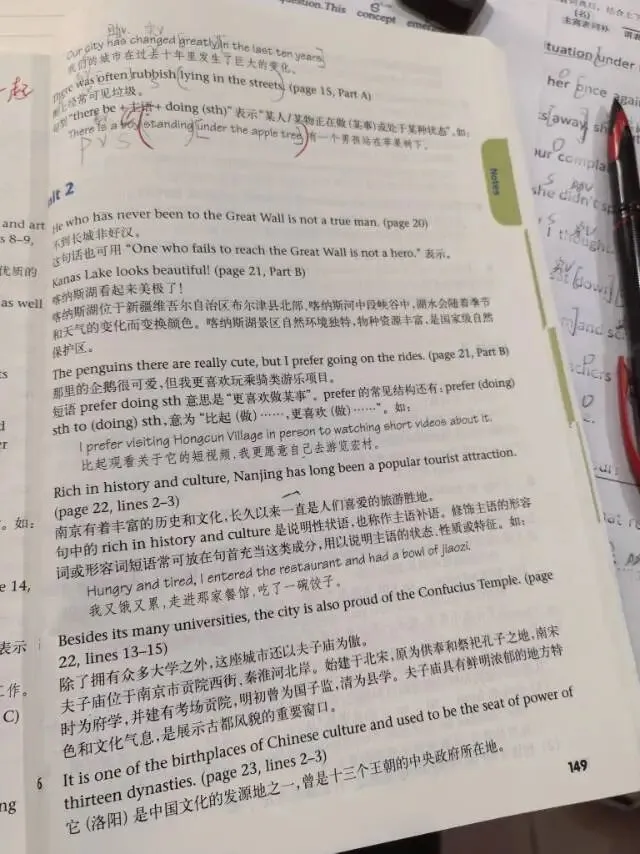 question. This concept emer
Our city has changed greatly in the last ten years.
我们的城市在过去十年里发生了巨大的变化。
There was often rubbish lying in the streets. (page 15, Part A)
经常可见垃圾。
“there be + 主语 + doing (sth)” 表示 “某人/某物正在做 (某事) 或处于某种状态”, 如:
There is a boy standing under the apple tree. 有一个男孩站在苹果树下。
P V S
Notes
Unit 2
He who has never been to the Great Wall is not a true man. (page 20)
不到长城非好汉。
这句话也可用 “One who fails to reach the Great Wall is not a hero.” 表示。
Kanas Lake looks beautiful! (page 21, Part B)
喀纳斯湖看起来美极了!
喀纳斯湖位于新疆维吾尔自治区布尔津县北部、喀纳斯河中段峡谷中, 湖水会随着季节
和天气的变化而变换颜色。喀纳斯湖景区自然环境独特, 物种资源丰富, 是国家级自然
保护区。
The penguins there are really cute, but I prefer going on the rides. (page 21, Part B)
那里的企鹅很可爱, 但我更喜欢玩乘骑类游乐项目。
短语 prefer doing sth 意思是 “更喜欢做某事”。prefer 的常见结构还有: prefer (doing)
sth to (doing) sth, 意为 “比起 (做) ……, 更喜欢 (做) ……”。如:
I prefer visiting Hongcun Village in person to watching short videos about it.
比起观看关于它的短视频, 我更愿意自己去游览宏村。
Rich in history and culture, Nanjing has long been a popular tourist attraction.
(page 22, lines 2–3)
南京有着丰富的历史和文化, 长久以来一直是人们喜爱的旅游胜地。
句中的 rich in history and culture 是说明性状语, 也称作主语补语。修饰主语的形容
词或形容词短语常可放在句首充当这类成分, 用以说明主语的状态、性质或特征。如:
Hungry and tired, I entered the restaurant and had a bowl of jiaozi.
我又饿又累, 走进那家餐馆, 吃了一碗饺子。
Besides its many universities, the city is also proud of the Confucius Temple. (page
22, lines 13–15)
除了拥有众多大学之外, 这座城市还以夫子庙为傲。
夫子庙位于南京市贡院西街、秦淮河北岸。始建于北宋, 原为供奉和祭祀孔子之地, 南宋
时为府学, 并建有考场贡院, 明初曾为国子监, 清为县学。夫子庙具有鲜明浓郁的地方特
色和文化气息, 是展示古都风貌的重要窗口。
6 It is one of the birthplaces of Chinese culture and used to be the seat of power of
thirteen dynasties. (page 23, lines 2–3)
它 (洛阳) 是中国文化的发源地之一, 曾是十三个王朝的中央政府所在地。
149
一起
and art
s 8–9,
优质的
as well
。如:
e 14,
表示
工作。
C)
ng
主宾表词补
tuation under
her once again
away
our compla
she didn't s
I though
down
and s
achers